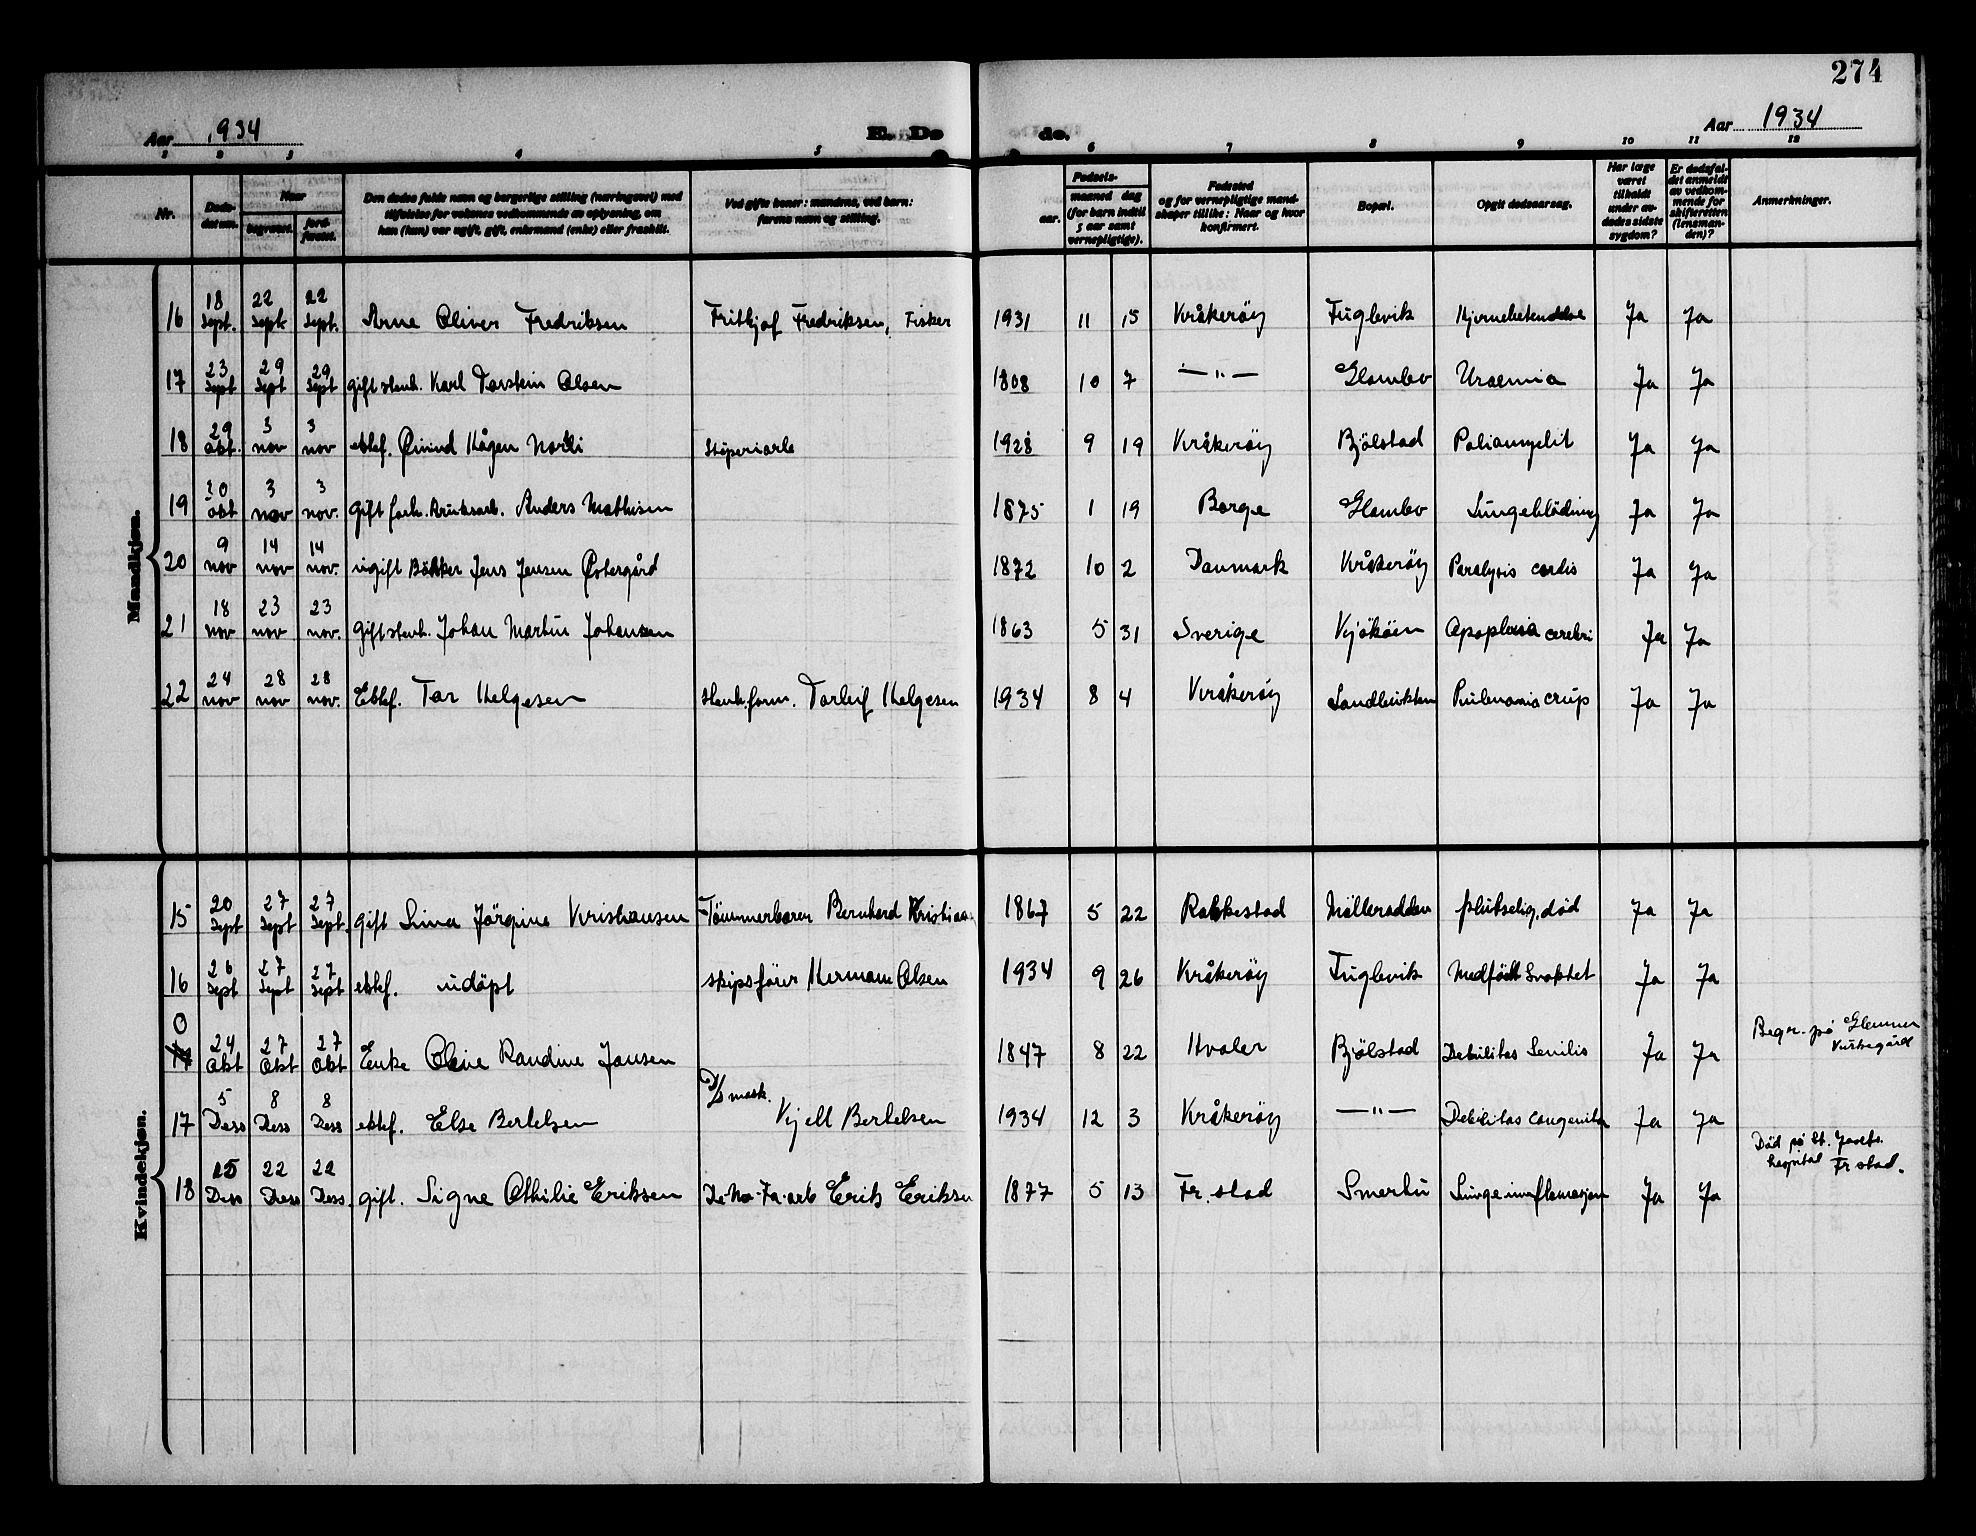 274
Aar 1934
E. Døde.
Aar 1934
1 2 3 4 5 6 7 8 9 10 11 12
Nr.
Døds-datum.
Naar
begravet.
jord-fæstet.
Den dødes fulde navn og borgerlige stilling (næringsvei) med tilføielse for voksnes vedkommende av oplysning, om han (hun) var ugift, gift, enkemand (enke) eller fraskilt.
Ved gifte koner: mandens, ved barn: farens navn og stilling.
Fødsels-
aar.
maaned dag (for barn indtil 5 aar samt vernepligtige).
Fødested og for vernepligtige mandskaper tillike: Naar og hvor konfirmert.
Bopæl.
Opgit dødsaarsag.
Har læge været tilkaldt under avdødes sidste sygdom?
Er dødsfaldet anmeldt av vedkommende for skifteretten (lensmanden)?
Anmerkninger.
Mandkjøn.
16 18 Sept. 22 Sept 22 Sept. Arne Oliver Fredriksen Fritjof Fredriksen, Fisker 1931 11 15 Kråkerøy Fuglevik Hjernebetendelse Ja Ja
17 23 Sept 29 Sept 29 Sept gift stenh. Karl Torstein Olsen 1808 10 7 —"— Glombo Uraemia Ja Ja
18 29 Okt. 3 nov 3 nov ektef. Øivind Hågen Norli Støperiarb 1928 9 19 Kråkerøy Bjølstad Poliomyelit Ja Ja
19 30 okt 3 nov 3 nov. gift forh. Bruksarb. Anders Mathisen 1875 1 19 Borge Glombo Lungeblødning Ja Ja
20 9 nov 14 nov 14 nov. ugift Bakker Jens Jensen Østergård 1872 10 2 Danmark Kråkerøy Paralysis cordis Ja Ja
21 18 nov 23 nov 23 nov. gift stenh. Johan Martin Johansen 1863 5 31 Sverige Kjøkøen Apoplexia cerebri Ja Ja
22 24 nov 28 nov 28 nov. Ektef. Tor Helgesen Stenh.form. Torleif Helgesen 1934 8 4 Kråkerøy Pulmonia crup Ja Ja
Kvindekjøn.
15 20 Sept 27 Sept 27 Sept. gift Lina Jørgine Kristiansen Tømmerbærer Bernhard Kristians. 1867 5 22 Rakkestad Mølleradden plutselig død Ja Ja
16 26 Sept 27 Sept 27 Sept ektef. udøpt skipsfører Herman Olsen 1934 9 26 Kråkerøy Fuglevik Medfødt Svakhet Ja Ja
0 24 Okt 27 Okt 27 Okt Enke Oleve Randine Jansen 1847 8 22 Hvaler Bjølstad Debilitas Senilis Ja Ja Begr. på Glemmen Kirkegård
17 5 Dess 8 Dess 8 Dess ektef. Else Bertelsen D/S mask. Kjell Bertelsen 1934 12 3 Kråkerøy —"— Debilitas congenita Ja Ja
18 15 Dess 22 Dess 22 Dess. gift. Signe Othilie Eriksen De-No-Fa-arb Erik Eriksen 1877 5 13 Fr.stad Smertu Lungeinflamasjon Ja Ja Død på St. Josefs. hospital Fr stad.